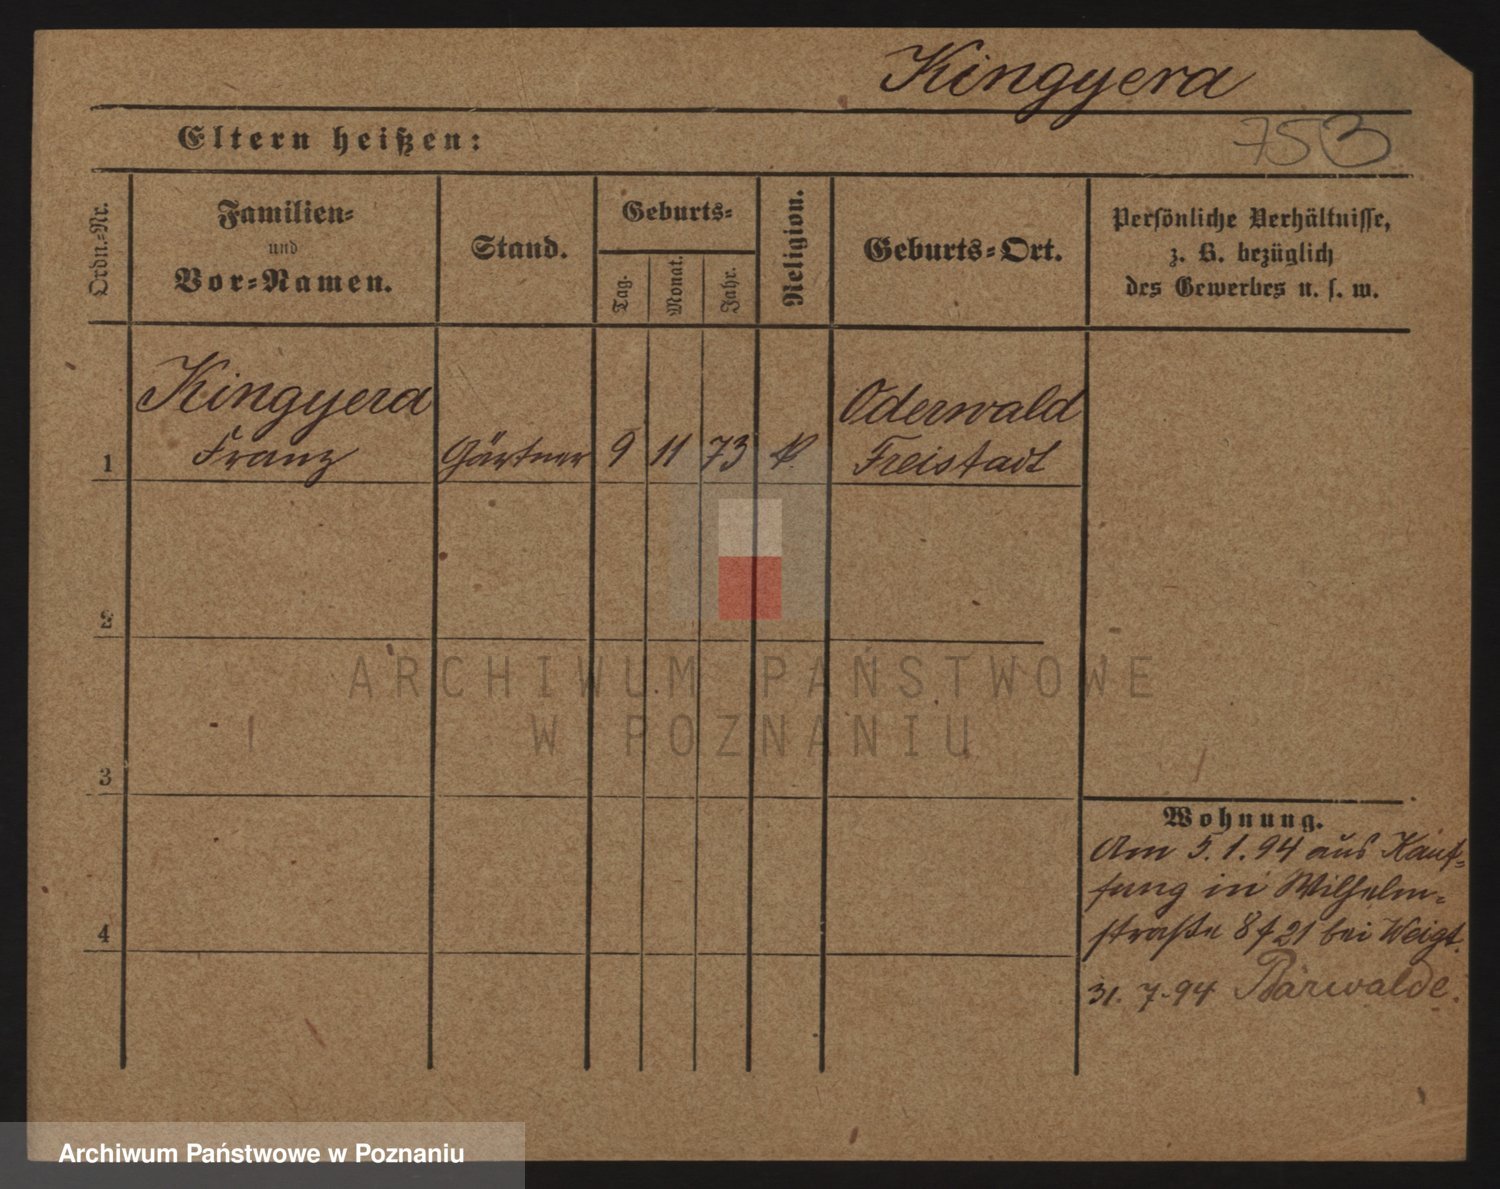 Kingyera
Eltern heißen:
753
Ordn.-Nr.
Familien-
und
Vor-Namen.
Stand.
Geburts-
Tag.
Monat.
Jahr.
Religion.
Geburts-Ort.
Persönliche Verhältnisse,
z. B. bezüglich
des Gewerbes u. s. w.
Kingyera
Franz
1
Gärtner
9
11
73
k.
Oderwald
Freistadt
2
ARCHIWUM PAŃSTWOWE
W POZNANIU
3
Wohnung.
Am 5.1.94 aus Kauf-
fung in Wilhelm-
straße 8 f 21 bei Weigt.
4
31. 7. 94 Bärwalde.
Archiwum Państwowe w Poznaniu